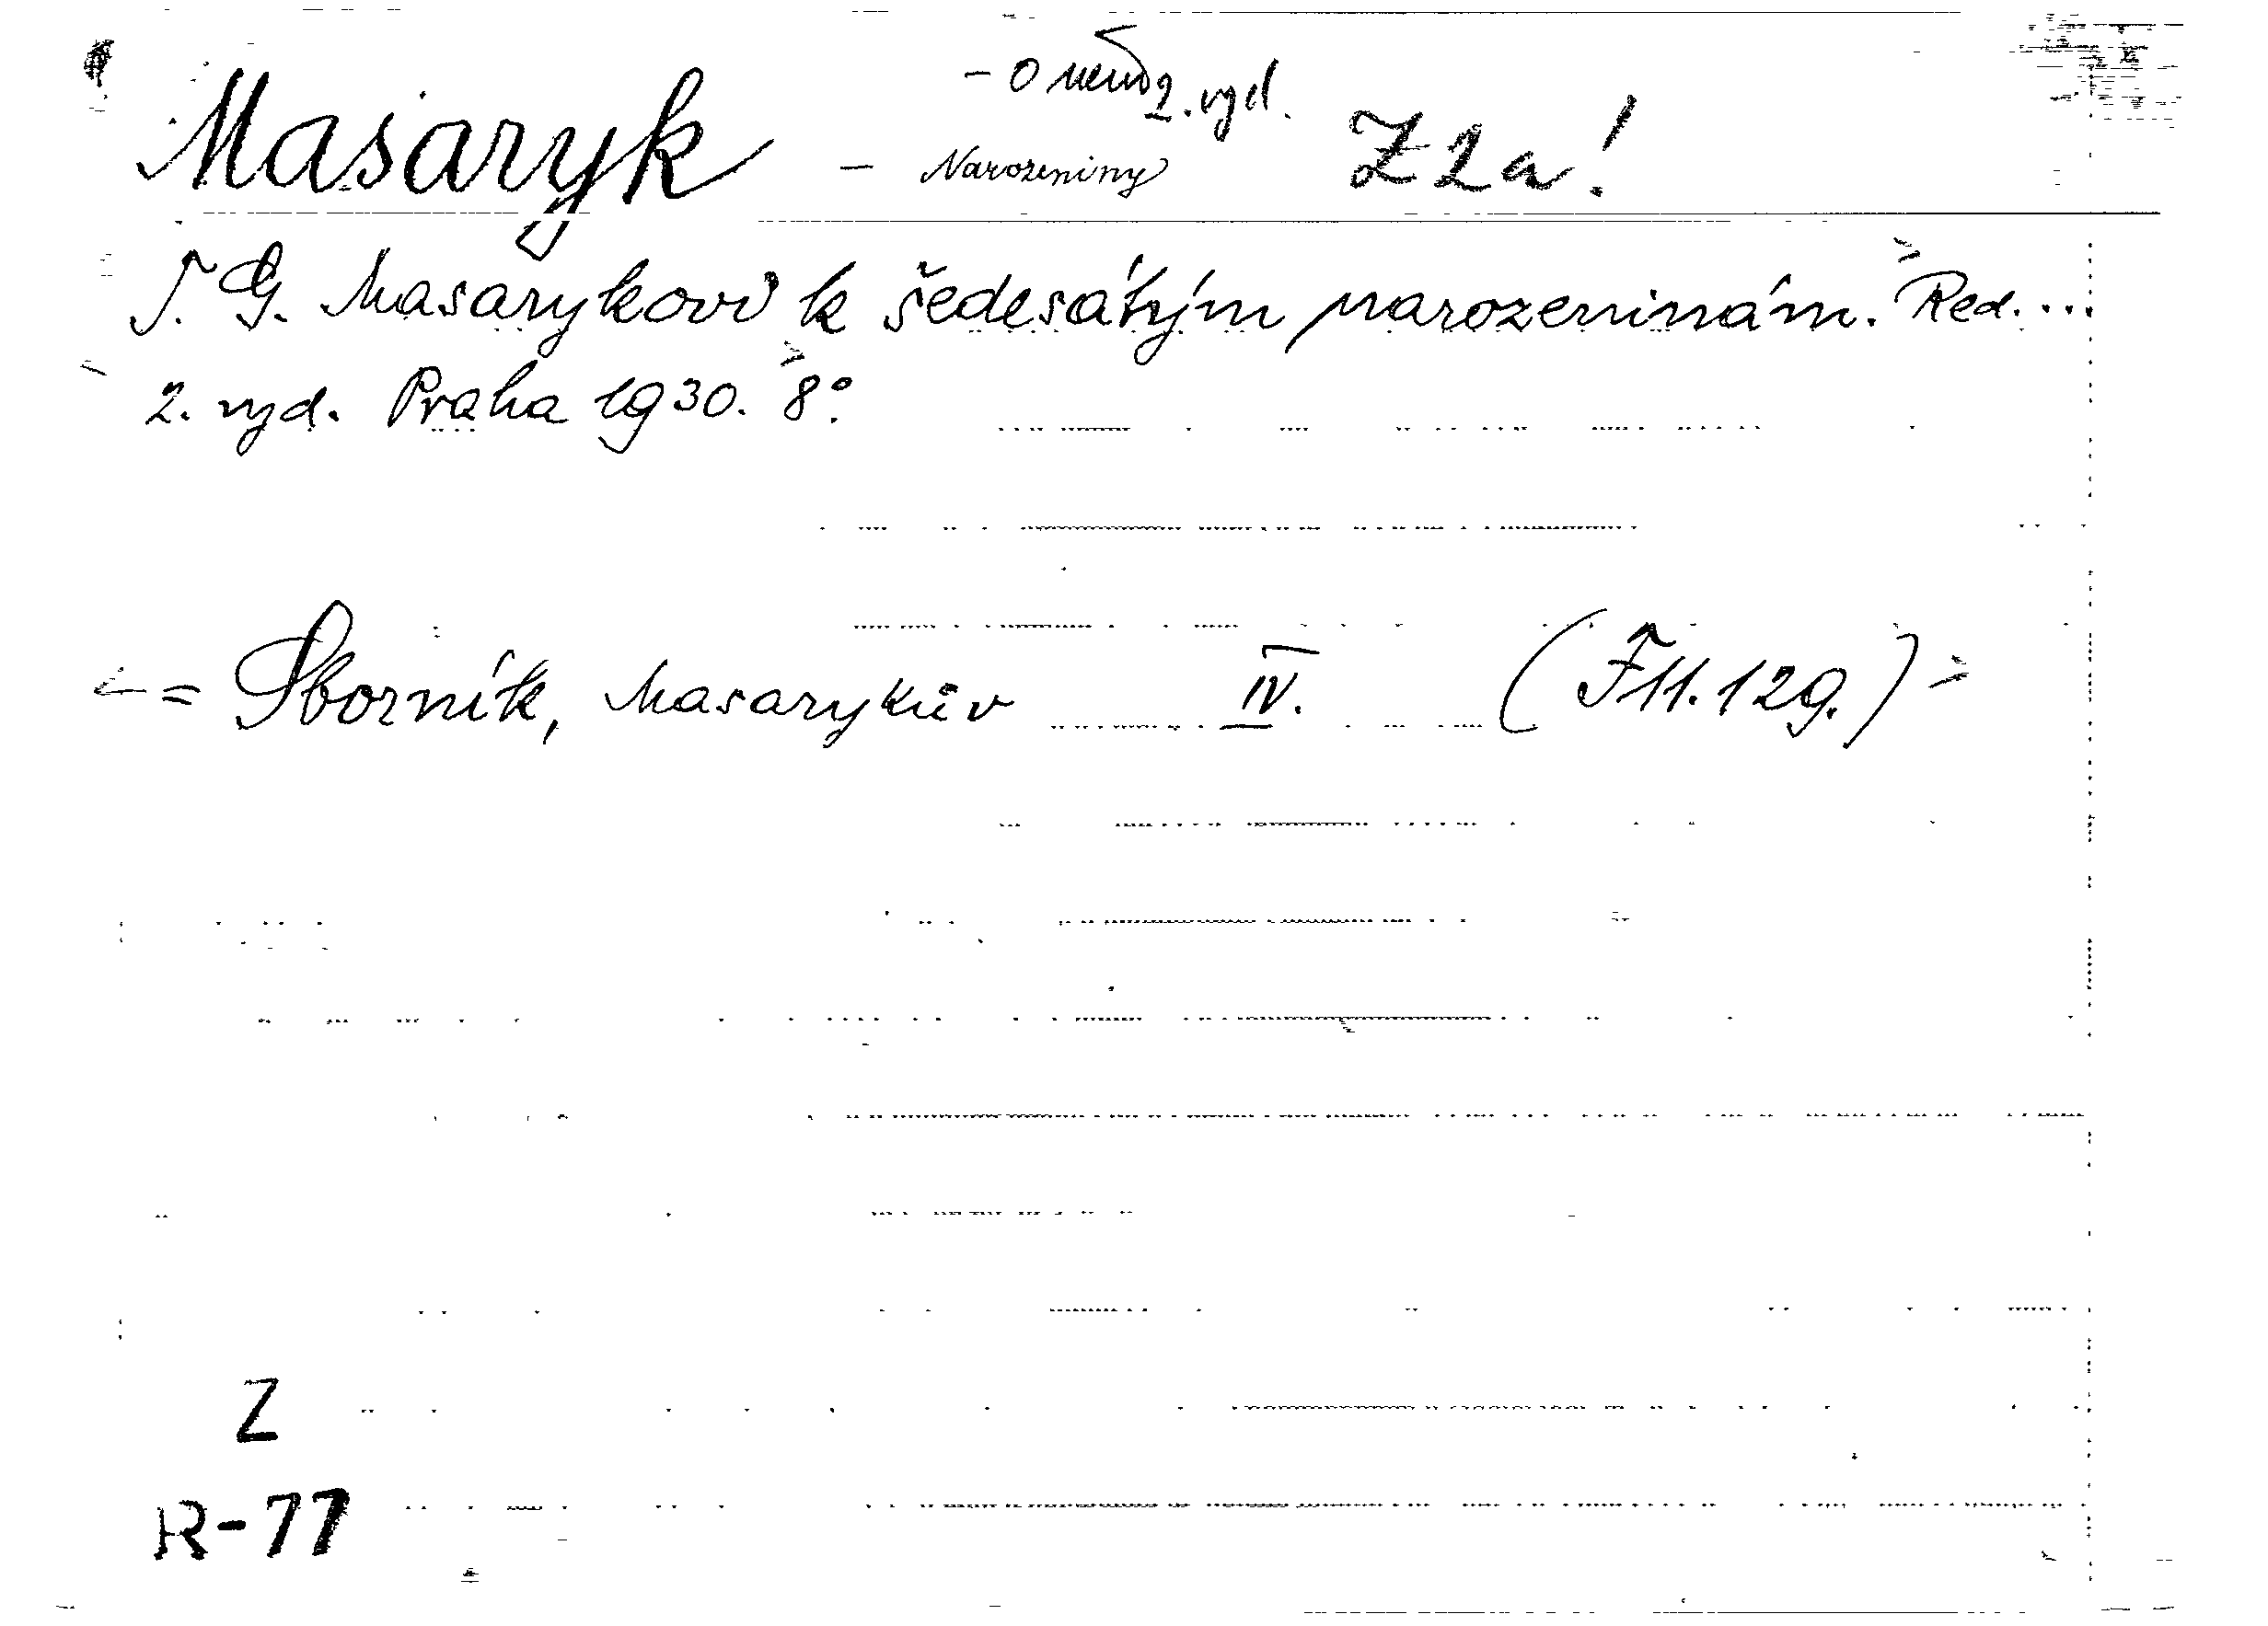 - O něm 2. vyd.
Masaryk - Narozeniny Z 2a!
T. G. Masarykovi k šedesátým narozeninám. Red. ...
2. vyd. Praha 1930. 8°.
= Sborník, Masarykův IV. (F 11.129.)
Z
R-77